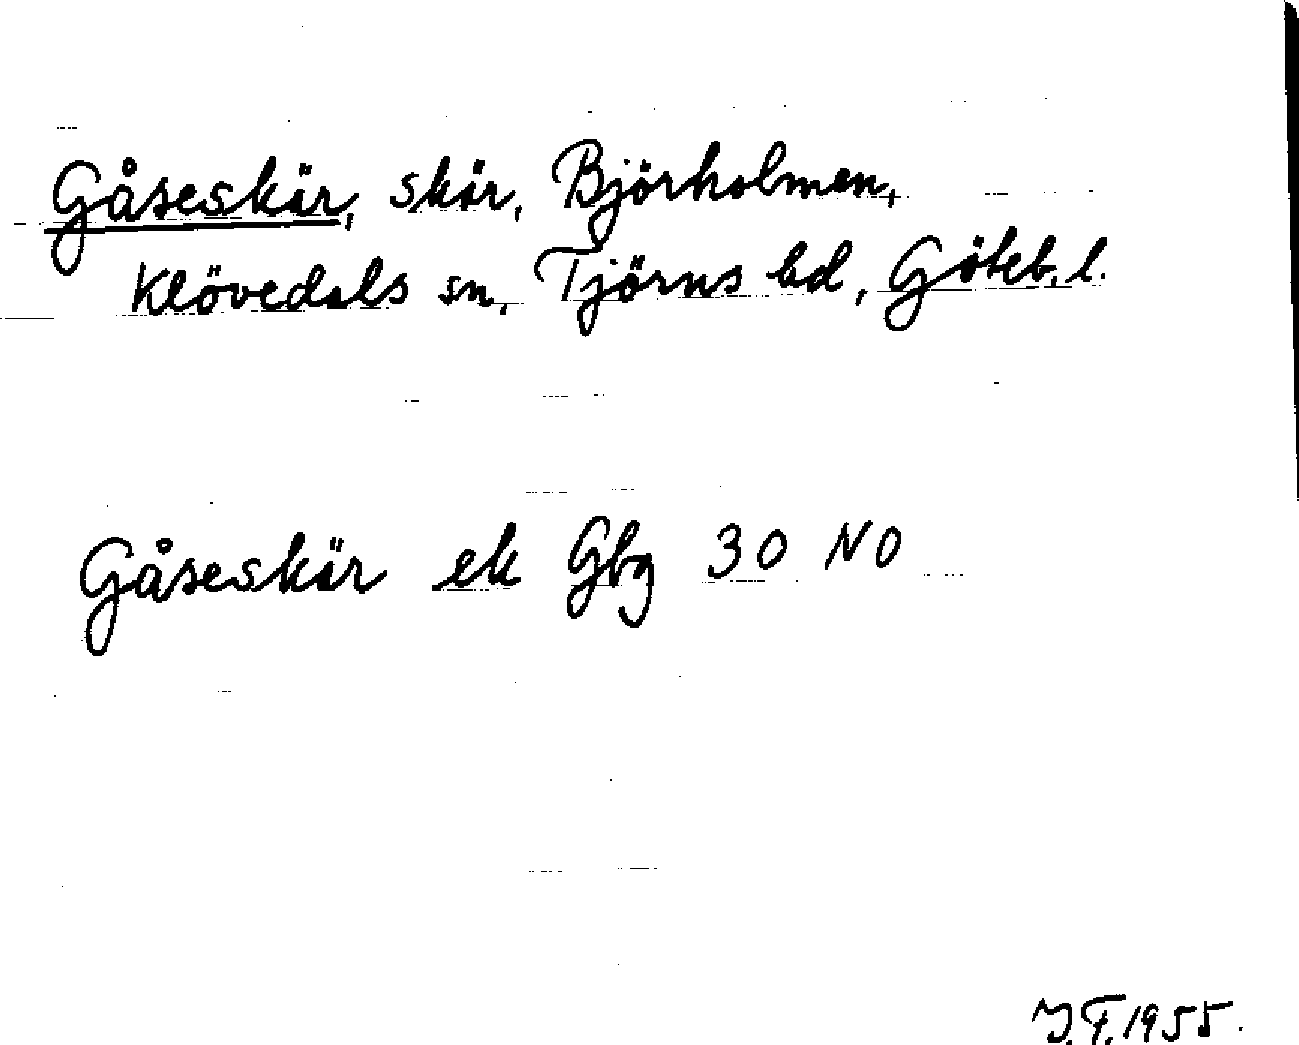 Gåseskär, skär, Björholmen,
Klövedals sn, Tjörns hd, Göteb. l.
Gåseskär ek Gbg 30 NO
J.F. 1955.